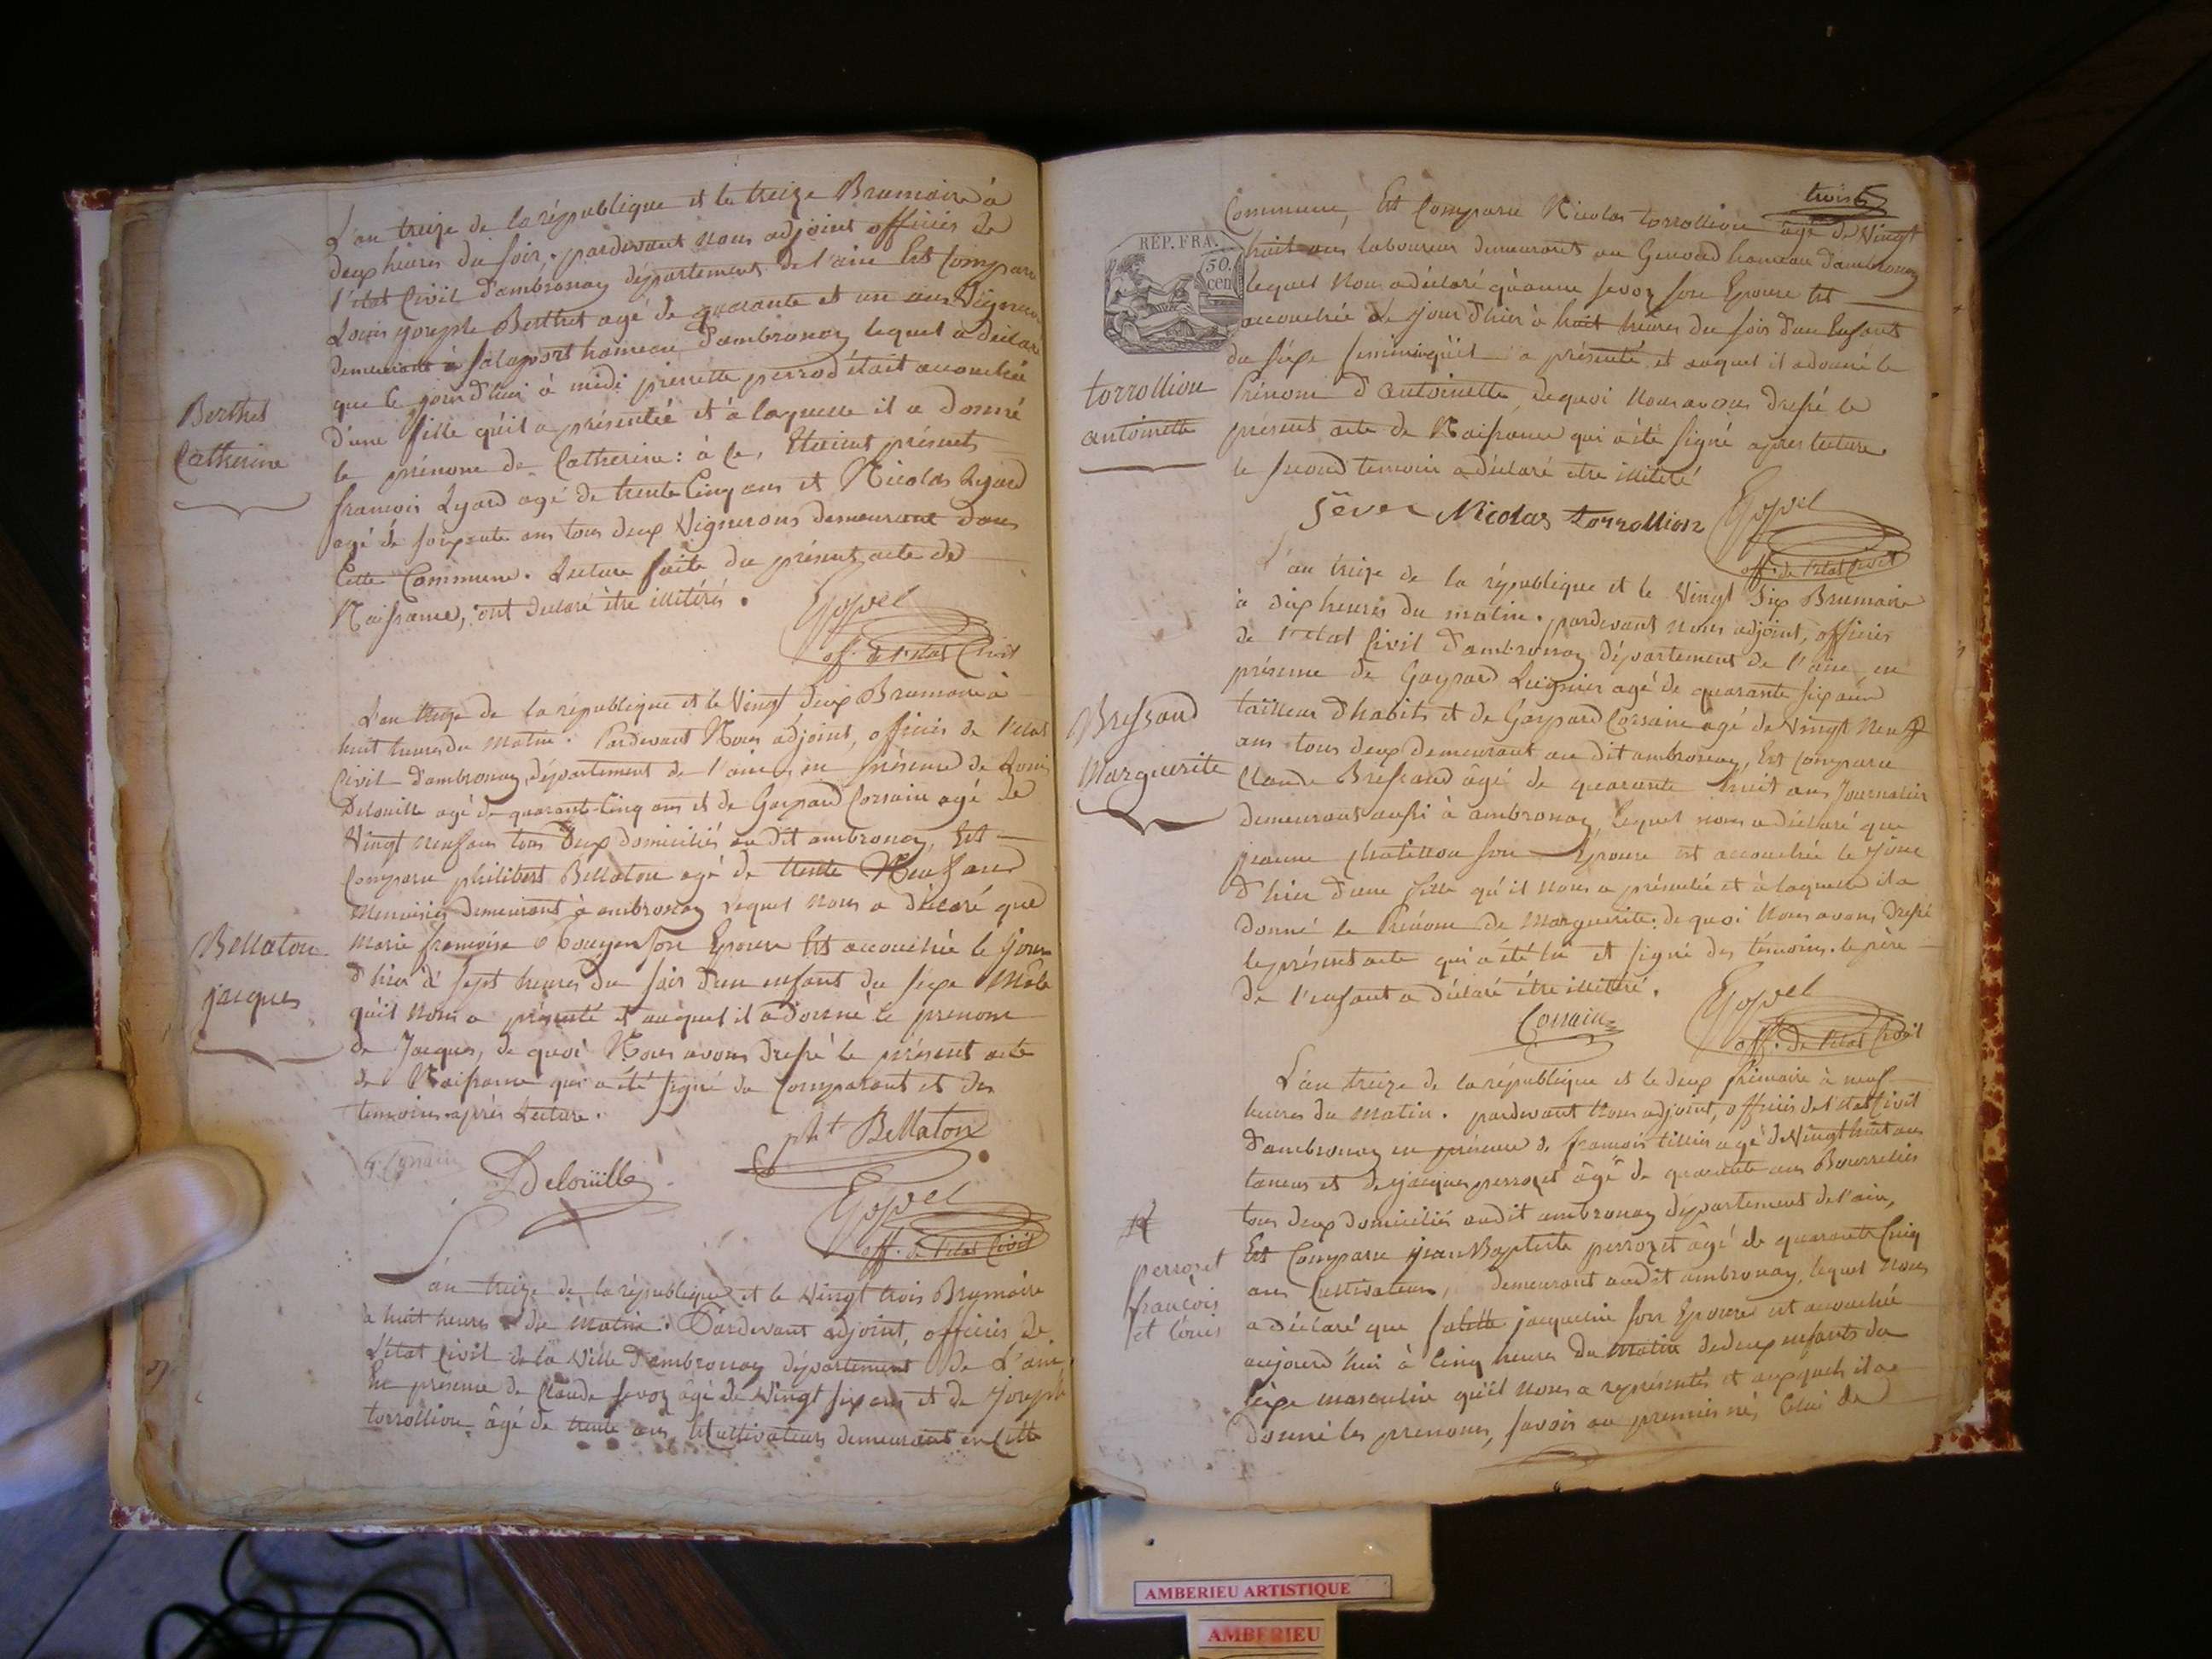 L'an treize de la république et le treize Brumaire à
deux heures du soir, pardevant nous adjoint officier de
l'etat Civil d'ambronay département de l'ain Est Comparu
Louis joseph Berthet agé de quarante et un ans Vigneron
demeurant à hameau d'ambronay lequel a déclaré
que le jourd'hui à midi pierrette perrod était accouchée
d'une fille qu'il a présentée et à laquelle il a donné
le prénom de Catherine : à ce, Etaient présents
françois Lyard agé de trente Cinq ans et Nicolas Lyard
agé de soixante ans tous deux Vignerons demeurant dans
Cette Commune. Lecture faite du présent acte de
Naissance, ont declaré être illitérés.
Berthet
Catherine
Goyvel
off. de l'etat Civil
L'an treize de la république et le Vingt deux Brumaire à
huit heures du Matin. Pardevant Nous adjoint, officier de l'etat
Civil d'ambronay, département de l'ain, en présence de Louis
Delouille agé de quarante-Cinq ans et de Gaspard Corsain agé de
Vingt neuf ans tous deux domiciliés au dit ambronay, Est
Comparu philibert Bellaton agé de trente Neuf ans
Menuisier demeurant à ambronay Lequel Nous a déclaré que
Marie françoise son Epouse Est accouchée le jour
d'hier à sept heures du soir d'un enfant du sexe Mâle
qu'il Nous a présenté et auquel il a donné le prenom
de Jacques, de quoi Nous avons dressé le présent acte
de Naissance qui a été signé du Comparant et des
temoins après Lecture.
Bellaton
jacques
pht Bellaton
G. Corsain
Delouille
Goyvel
off. de l'etat Civil
L'an treize de la république et le Vingt trois Brumaire
à huit heures du Matin. Pardevant adjoint, officier de
L'état Civil de la Ville d'ambronay département de L'ain,
En présence de Claude sevoz âgé de Vingt six ans et de Joseph
torrollion âgé de trente ans, Cultivateurs demeurant en Cette
trois
Commune, Est Comparu Nicolas torrollion âgé de Vingt
huit ans laboureur demeurant au Genoud hameau d'ambronay
REP. FRA.
50.
cen
lequel Nous a déclaré qu'anne sevoz son Epouse Est
accouchée le jour d'hier à huit heures du soir d'un Enfant
du séxe feminin qu'il a présenté et auquel il a donné le
Prénom d'antoinette, de quoi Nous avons dressé le
présent acte de Naissance qui a été signé après lecture
le second temoin a déclaré etre illitéré
torrollion
antoinette
Séver Nicolas torrollion
Goyvel
off. de l'etat Civil
L'an treize de la république et le Vingt Six Brumaire
à dix heures du matin. pardevant nous adjoint, officier
de l'etat Civil d'ambronay département de l'ain en
présence de Gaspard Luignier agé de quarante six ans
tailleur d'habits et de Gaspard Corsain agé de Vingt Neuf
ans tous deux demeurant au dit ambronay, Est comparu
Claude Bressand âgé de quarante huit ans Journalier
demeurant aussi à ambronay, lequel nous a déclaré que
jeanne chatillon son Epouse est accouchée le jour
d'hier d'une fille qu'il nous a présentée et à laquelle il a
donné le Prénom de Marguerite. de quoi Nous avons dressé
le présent acte qui a été lu et signé des témoins. le père
de l'enfant a déclaré être illitéré.
Bressand
Marguerite
Corsain
Goyvel
off. de l'etat Civil
L'an treize de la république et le deux frimaire à neuf
heures du Matin. pardevant Nous adjoint, officier de l'etat Civil
d'ambronay en présence de françois tillier agé de Vingt huit ans
taneur et de jacques perrozet âgé de quarante ans Bourrelier
tous deux domiciliés audit ambronay département de l'ain,
Est Comparu jean Baptiste perrozet âgé de quarante Cinq
ans Cultivateur, demeurant audit ambronay, lequel nous
a déclaré que jacqueline son Epouse est accouchée
aujourd'hui à Cinq heures du Matin de deux enfants du
séxe masculin qu'il Nous a représentés et auxquels il a
donné les prenoms, savoir au premier né, Celui de
perrozet
françois
et Louis
AMBERIEU ARTISTIQUE
AMBERIEU